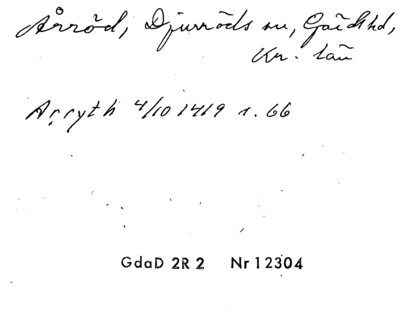 Årröd, Djurröds sn, Gärds hd,
Kr. län
Arryth 4/10 1419 s. 66
GdaD 2R2 Nr 12304